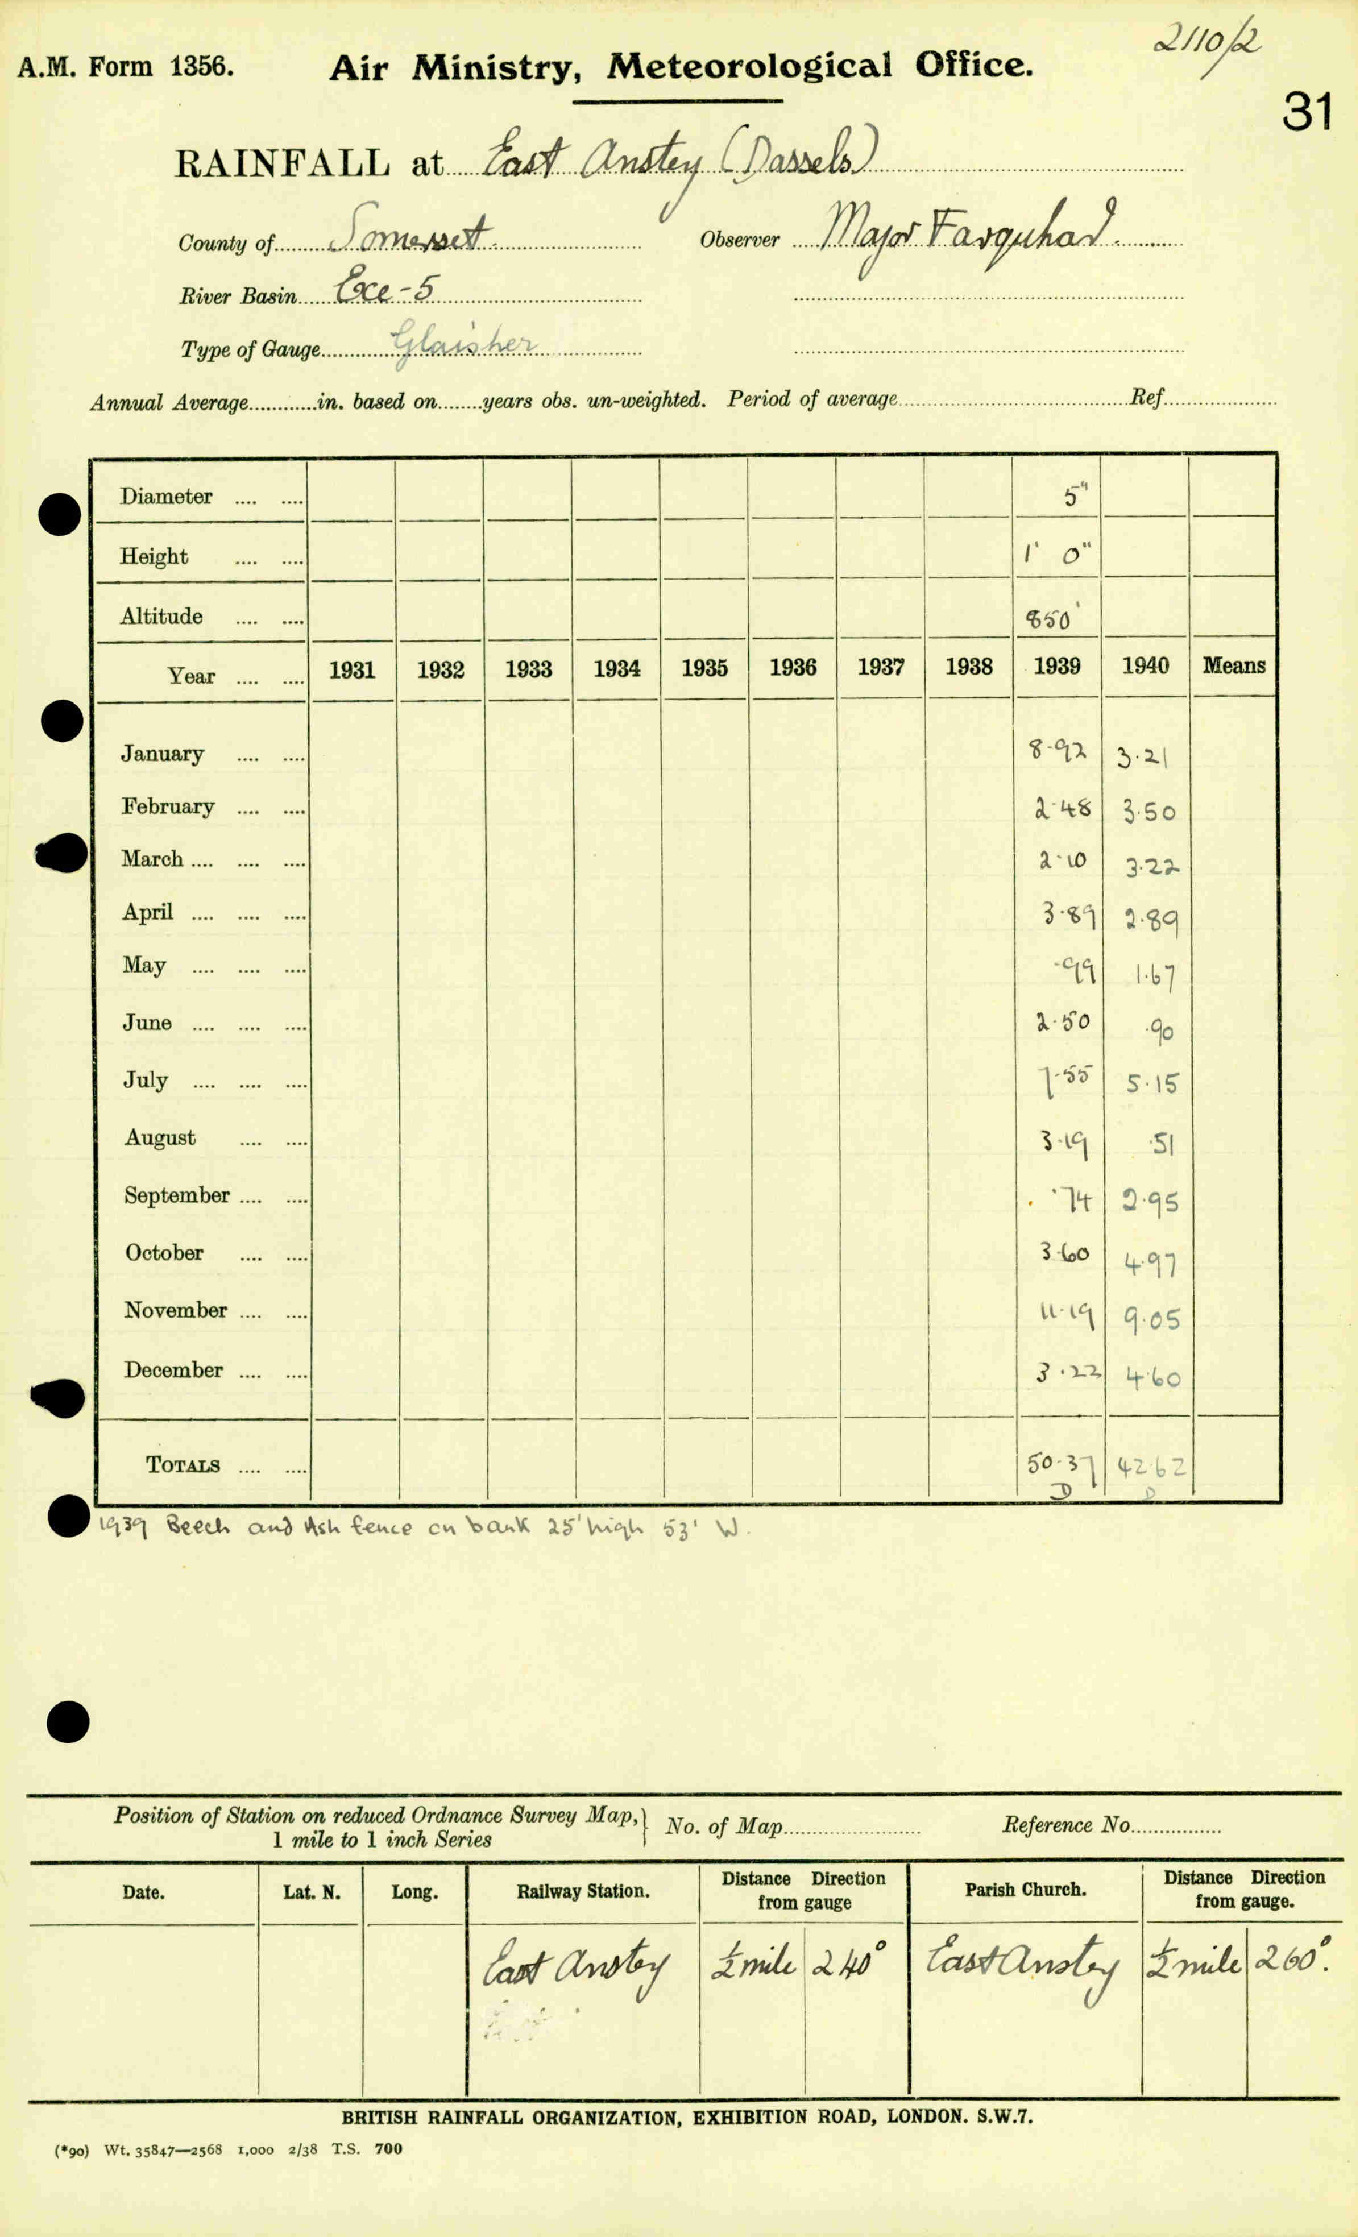 2110/2
A.M. Form 1356. Air Ministry, Meteorological Office.
31
RAINFALL at East Anstey (Dassels)
County of Somerset. Observer Major Farquhar.
River Basin Exe-5
Type of Gauge Glaisher
Annual Average............in. based on........years obs. un-weighted. Period of average........Ref........
Diameter .... .... 5"
Height .... .... 1' 0"
Altitude .... .... 850'
Year .... .... 1931 1932 1933 1934 1935 1936 1937 1938 1939 1940 Means
January .... .... 8.92 3.21
February .... .... 2.48 3.50
March .... .... .... 2.10 3.22
April .... .... .... 3.89 2.89
May .... .... .... .99 1.67
June .... .... .... 2.50 .90
July .... .... .... 7.55 5.15
August .... .... 3.19 .51
September .... .... .74 2.95
October .... .... 3.60 4.97
November .... .... 11.19 9.05
December .... .... 3.22 4.60
TOTALS .... .... 50.37 42.62
D D
1939 Beech and Ash fence on bank 25' high 53' W.
Position of Station on reduced Ordnance Survey Map, 1 mile to 1 inch Series} No. of Map........ Reference No........
Date. Lat. N. Long. Railway Station. Distance Direction from gauge Parish Church. Distance Direction from gauge.
East Anstey ½ mile 240° East Anstey ½ mile 260°.
BRITISH RAINFALL ORGANIZATION, EXHIBITION ROAD, LONDON. S.W.7.
(*90) Wt. 35847—2568 1,000 2/38 T.S. 700